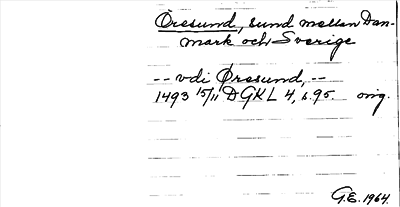 Öresund, sund mellan Dan-
mark och Sverige
-- vdi Øresund, --
1493 15/11 DGKL 4, s. 95. orig.
G.E. 1964.